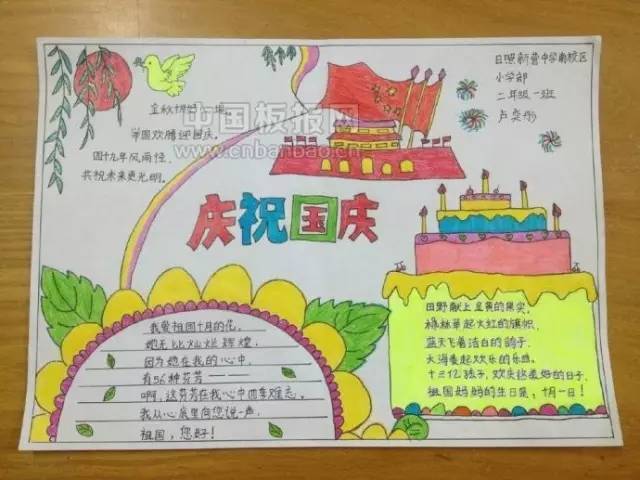 金秋
举国欢腾迎国庆。
四十九年风雨径,
共祝未来更光明。
中国板报网
www.cnbanbao.cn
日照新营中学南校区
小学部
二年级一班
卢奕彤
庆祝国庆
我爱祖国十月的花。
她无比灿烂辉煌,
因为她在我的心中
有56种芬芳——
啊,这芬芳在我心中四季难忘。
我从心底里向您说一声
祖国,您好!
田野献上金黄的果实,
枫林举起火红的旗帜,
蓝天飞着洁白的鸽子,
大海奏起欢乐的乐曲。
十三亿孩子,欢庆这美好的日子,
祖国妈妈的生日是,十月一日!